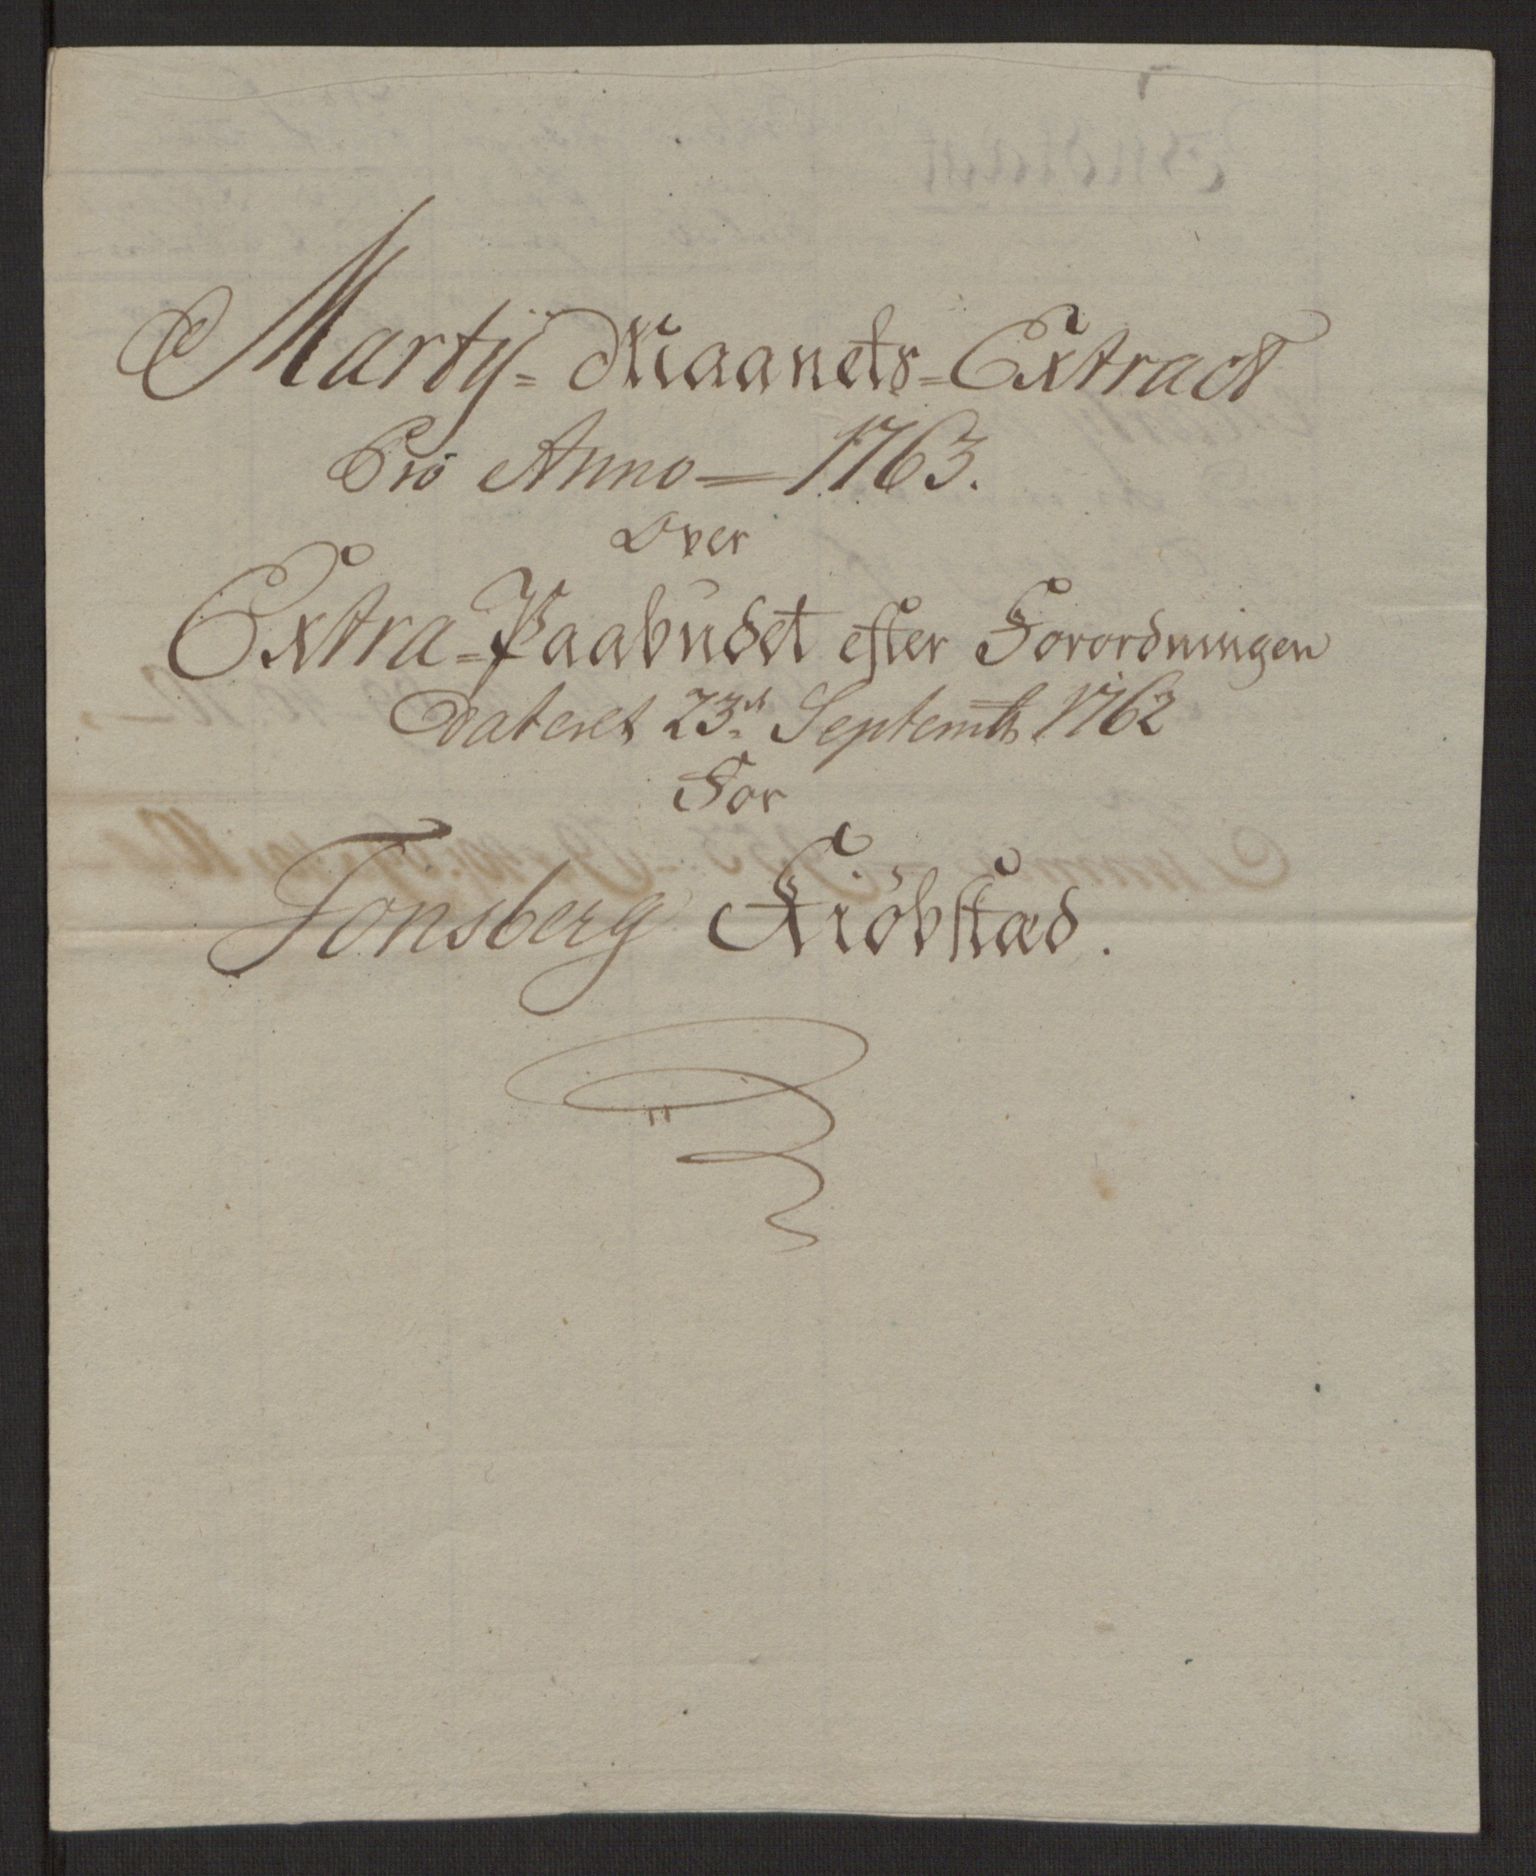 Martij = Maanets = Extract
Pro Anno = 1763.
Over
Extra = Paabudet efter Forordningen
Dateret 23.d Septembr 1762
For
Tonsberg Kiöbstæd.